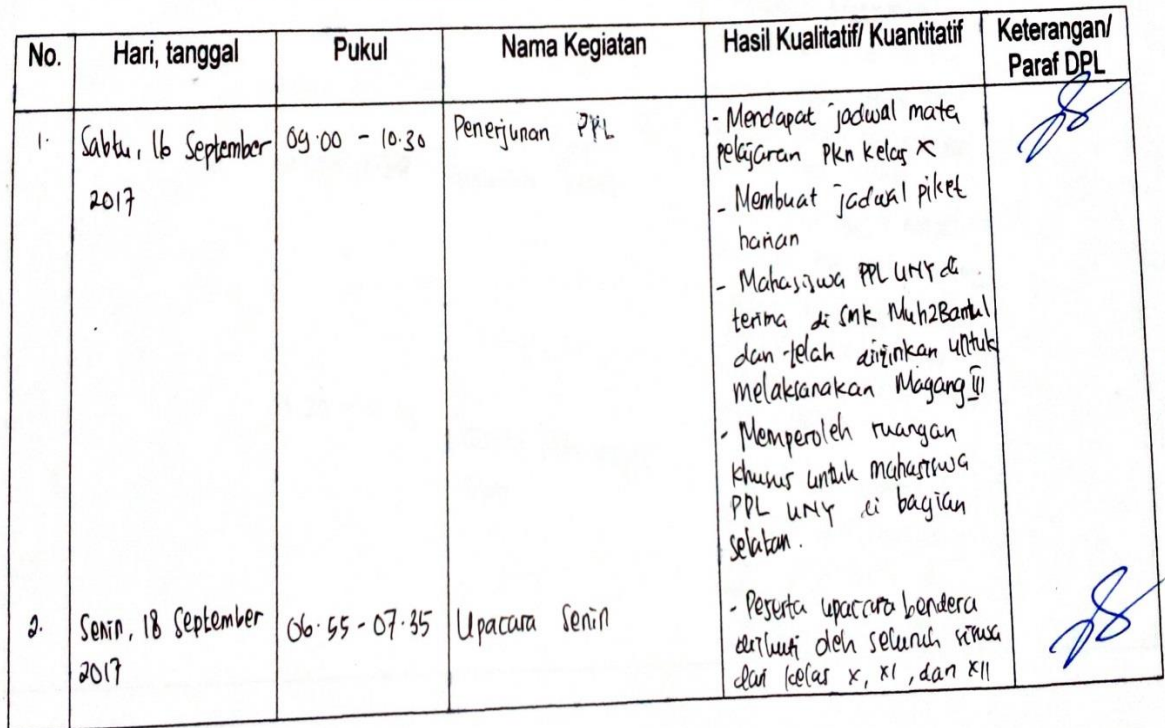 No. Hari, tanggal Pukul Nama Kegiatan Hasil Kualitatif/ Kuantitatif Keterangan/
Paraf DPL
1. Sabtu, 16 September 09.00 - 10.30 Penerjunan PPL - Mendapat jadwal mata
2017 pelajaran Pkn kelas X
- Membuat jadwal piket
harian
- Mahasiswa PPL UNY di
terima di SMK Muh2Bantul
dan telah diizinkan untuk
melaksanakan Magang III
- Memperoleh ruangan
khusus untuk mahasiswa
PPL UNY di bagian
selatan.
2. Senin, 18 September 06.55 - 07.35 Upacara Senin - Peserta upacara bendera
2017 diikuti oleh seluruh siswa
dari kelas X, XI, dan XII